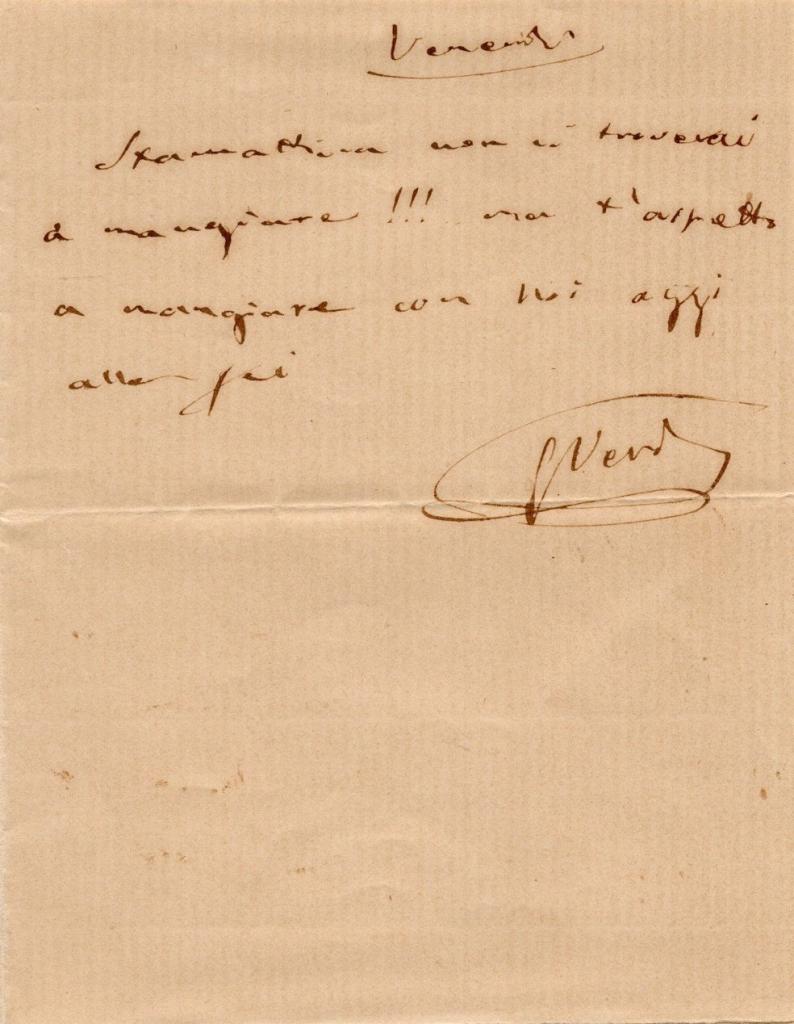 Venerdi
Stamattina non ci troverai
a mangiare !!! ma t'aspetto
a mangiare con noi oggi
alle sei
GVerdi